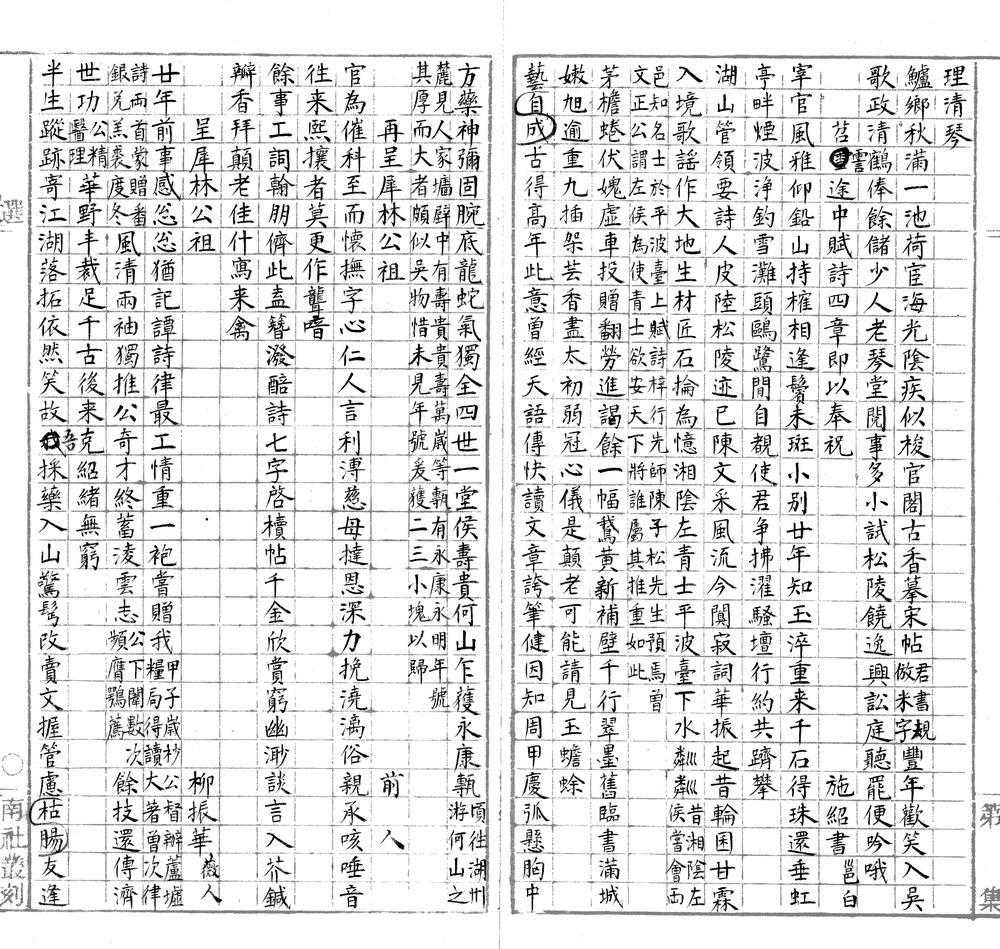 理清琴
鱸鄉秋滿一池荷宦海光陰疾似梭官閣古香摹宋帖君書規倣米字豐年歡笑入吳
歌政清鶴俸餘儲少人老琴堂閱事多小試松陵饒逸興訟庭聽罷便吟哦
莒雲途中賦詩四章即以奉祝 施紹書 邕白
宰官風雅仰鉛山持榷相逢鬢未斑小别廿年知玉淬重来千石得珠還垂虹
亭畔煙波浄釣雪灘頭鷗鷺閒自覩使君争拂濯騷壇行約共躋攀
湖山管領要詩人皮陸松陵迹已陳文采風流今闃寂詞華振起昔輪囷甘霖
入境歌謠作大地生材匠石掄為憶湘陰左青士平波臺下水粼粼昔湘陰左侯嘗會酉
邑知名士於平波臺上賦詩梓行先師陳子松先生預焉曾
文正公謂左侯為使青士欲安天下將誰屬其推重如此
茅檐蜷伏媿虛車投贈翻勞進謁餘一幅鵞黄新補壁千行翠墨舊臨書滿城
嫩旭逾重九插架芸香盡太初弱冠心儀是顛老可能請見玉蟾蜍
藝自成古得高年此意曾經天語傳快讀文章誇筆健因知周甲慶弧懸胸中
第 集
方藥神彌固腕底龍蛇氣獨全四世一堂侯壽貴何山乍獲永康甎頃往湖州游何山之
麓見人家墻壁中有壽貴貴壽萬歲等甎有永康永明年號
其厚而大者頗似吳物惜未見年號爰獲二三小塊以歸
再呈犀林公祖 前人
官為催科至而懷撫字心仁人言利溥慈母撻恩深力挽澆漓俗親承咳唾音
徃来熙攘者莫更作聾喑
餘事工詞翰朋儕此盍簪潑醅詩七字啓櫝帖千金欣賞窮幽渺談言入芥鍼
瓣香拜顛老佳什寫来禽
呈犀林公祖 柳振華 薇人
廿年前事感怱怱猶記譚詩律最工情重一袍嘗贈我甲子歲抄公督辦蘆墟糧局得讀大著曾次律
詩兩首蒙贈番銀兌羔裘度冬風清兩袖獨推公奇才終蓄淩雲志公下闈數次頻膺鶚薦餘技還傳濟
世功公精醫理華野丰裁足千古後来克紹緒無窮
半生蹤跡寄江湖落拓依然笑故吾採藥入山驚髩改賣文握管慮枯腸友逢
選
南社叢刻